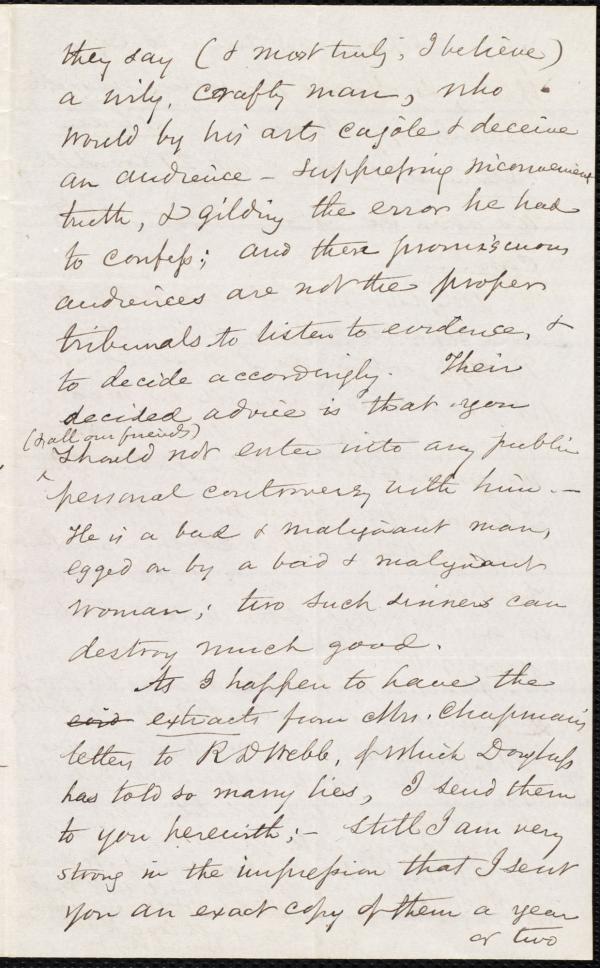 they say (& most truly, I believe)
a wily, crafty man, who
would by his arts cajole & deceive
an audience – suppressing inconvenient
truth, & gilding the error he had
to confess; and these promiscuous
audiences are not the proper
tribunals to listen to evidence, &
to decide accordingly. Their
decided advice is that you
(& all our friends)
should not enter into any public
personal controversy with him. –
He is a bad & malignant man,
egged on by a bad & malignant
woman; two such sinners can
destroy much good.
As I happen to have the
extracts from Mrs. Chapman's
letters to R D Webb, of which Douglass
has told so many lies, I send them
to you herewith; – still I am very
strong in the impression that I sent
you an exact copy of them a year
or two